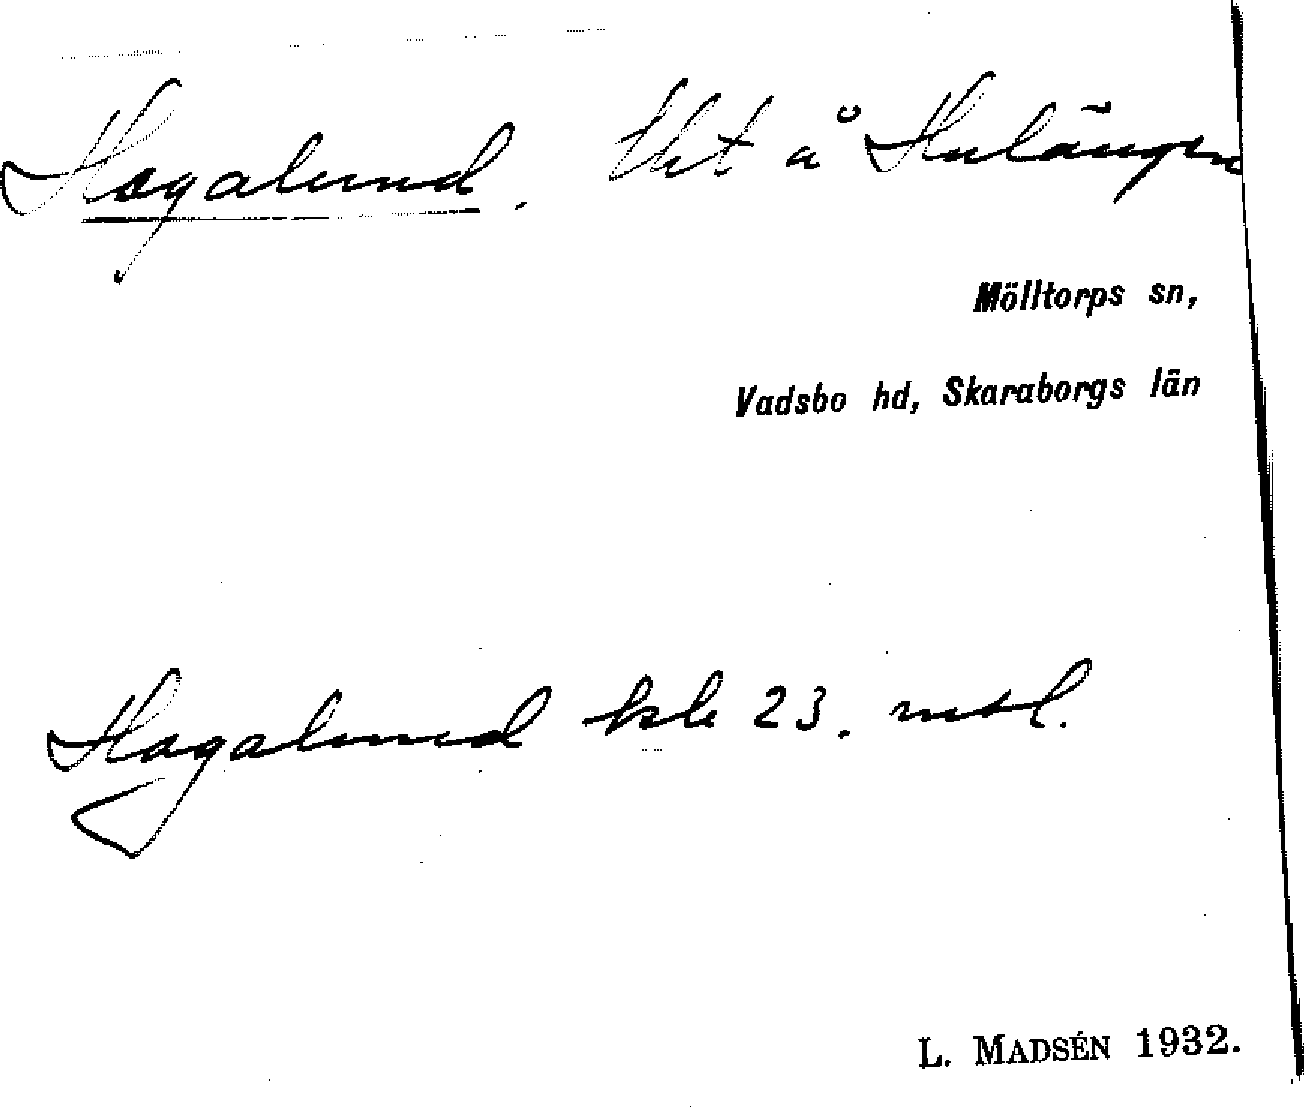 Hagalund. Lht å Hulängen
Mölltorps sn,
Vadsbo hd, Skaraborgs län
Hagalund hsk 23. mtl.
L. MADSÉN 1932.